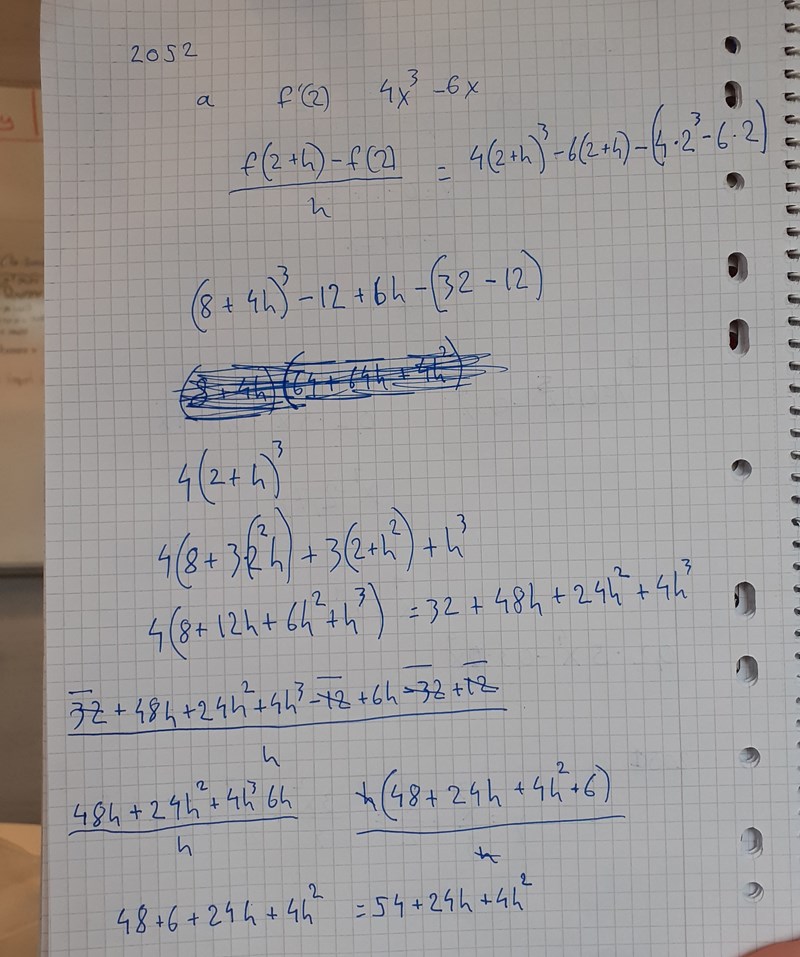 2052
a f'(2) 4x³ -6x
f(2+h) - f(2) / h = 4(2+h)³ - 6(2+h) - (4·2³ - 6·2)
(8 + 4h)³ - 12 + 6h - (32 - 12)
(8 + 4h) (64 + 64h + 4h²)
4(2 + h)³
4(8 + 3(2²h) + 3(2+h²) + h³
4(8 + 12h + 6h² + h³) = 32 + 48h + 24h² + 4h³
32 + 48h + 24h² + 4h³ - 12 + 6h - 32 + 12 / h
48h + 24h² + 4h³ 6h / h h(48 + 24h + 4h² + 6) / h
48 + 6 + 24h + 4h² = 54 + 24h + 4h²